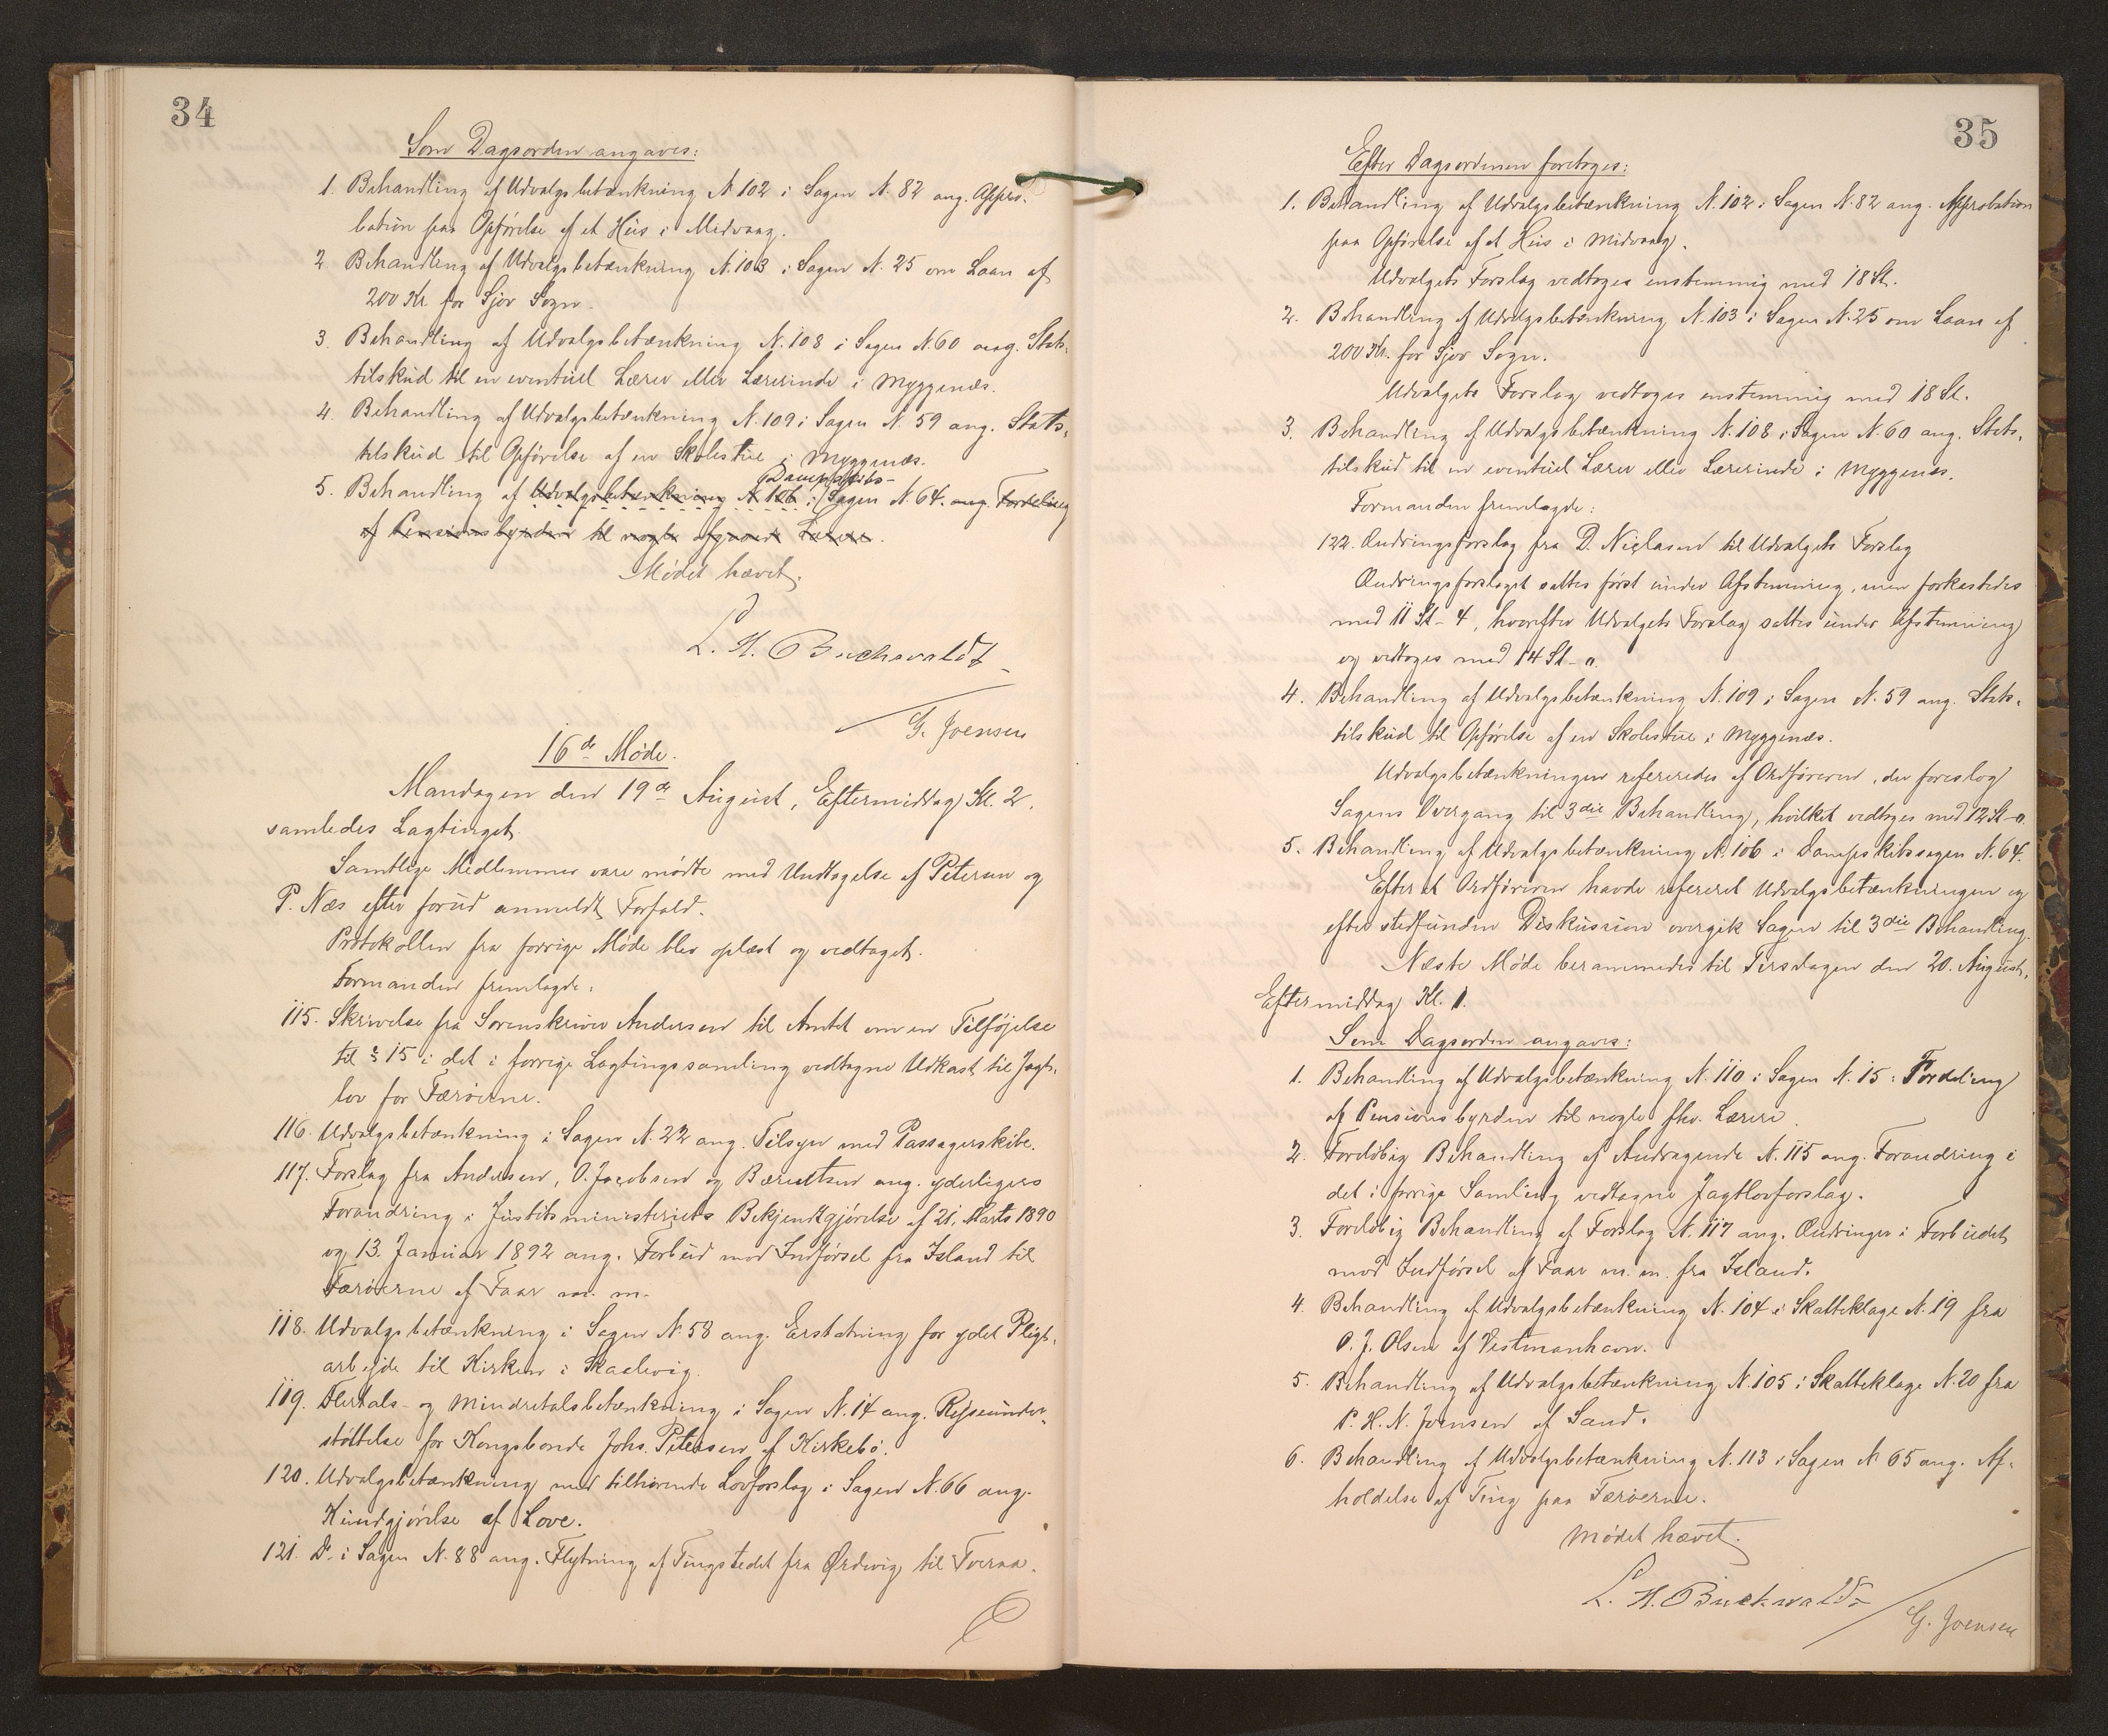 34
Som Dagsorden angaves:
1. Behandling af Udvalgsbetænkning N. 102 i Sagen N. 82 ang. Appro-
bation paa Opførelse af et Hus i Midvaag.
2 Behandling af Udvalgsbetænkning N. 103 i Sagen N. 25 om Laan af
200 Kr. for Sjov Sogn.
3. Behandling af Udvalgsbetænkning N. 108 i Sagen N. 60 ang. Stats-
tilskud til en eventuel Lærer eller Lærerinde i Myggenæs.
4. Behandling af Udvalgsbetænkning N. 109 i Sagen N. 59 ang. Stats-
tilskud til Opførelse af en Skolestue i Myggenæs.
Dampskibs-
5. Behandling af Udvalgsbetænkning N. 106 i Sagen N. 64. ang. Fordeling
af Pensionsbyrden til nogle afgaaede Lærere.
Mødet hævet.
L. H. Buchwaldt
G. Joensen
16de Møde.
Mandagen den 19de August, Eftermiddag Kl. 2.
samledes Lagtinget.
Samtlige Medlemmer vare mødte med Undtagelse af Petersen og
P. Næs efter forud anmeldt Forfald.
Protokollen fra forrige Møde blev oplæst og vedtaget.
Formanden fremlagde:
115. Skrivelse fra Sorenskriver Andersen til Amtet om en Tilføjelse
til § 15 i det i forrige Lagtingssamling vedtagne Udkast til Jagt-
lov for Færøerne.
116. Udvalgsbetænkning i Sagen N. 22 ang. Tilsyn med Passagerskibe.
117. Forslag fra Andersen, O. Jacobsen og Bærentsen ang. yderligere
Forandring i Justitsministeriets Bekjendtgjørelse af 21. Marts 1890
og 13. Januar 1892 ang. Forbud mod Indførsel fra Island til
Færøerne af Faar m. m.
118. Udvalgsbetænkning i Sagen N. 58 ang. Erstatning for ydet Pligt-
arbejde til Kirken i Skaalevig.
119. Flertals- og Mindretalsbetænkning i Sagen N. 14 ang. Rejseunder-
støttelse for Kongsbonde Johs. Petersen af Kirkebø.
120. Udvalgsbetænkning med tilhørende Lovforslag i Sagen N. 66 ang.
Kundgjørelse af Love.
121. Do. i Sagen N. 88 ang. Flytning af Tingstedet fra Ørdevig til Tveraa.
35
Efter Dagsordenen foretoges:
1. Behandling af Udvalgsbetænkning N. 102 i Sagen N. 82 ang. Approbation
paa Opførelse af et Hus i Midvaag.
Udvalgets Forslag vedtoges enstemmig med 18 St.
2. Behandling af Udvalgsbetænkning N. 103 i Sagen N. 25 om Laan af
200 Kr. for Sjov Sogn.
Udvalgets Forslag vedtoges enstemmig med 18 St.
3. Behandling af Udvalgsbetænkning N. 108 i Sagen N. 60 ang. Stats-
tilskud til en eventuel Lærer eller Lærerinde i Myggenæs.
Formanden fremlagde:
122. Ændringsforslag fra D. Niclasen til Udvalgets Forslag
Ændringsforslaget sattes først under Afstemning, men forkastedes
med 11 St - 4, hvorefter Udvalgets Forslag sattes under Afstemning
og vedtoges med 14 St - 0.
4. Behandling af Udvalgsbetænkning N. 109 i Sagen N. 59 ang. Stats-
tilskud til Opførelse af en Skolestue i Myggenæs.
Udvalgsbetænkningen refereredes af Ordføreren, der foreslog
Sagens Overgang til 3die Behandling, hvilket vedtoges med 12 St - 0.
5. Behandling af Udvalgsbetænkning N. 106 i Dampskibssagen N. 64.
Efter at Ordføreren havde refereret Udvalgsbetænkningen og
efter stedfunden Diskussion overgik Sagen til 3die Behandling.
Næste Møde berammedes til Tirsdagen den 20. August,
Eftermiddag Kl. 1.
Som Dagsorden angaves:
1. Behandling af Udvalgsbetænkning N. 110 i Sagen N. 15: Fordeling
af Pensionsbyrden til nogle fhv. Lærere.
2. Foreløbig Behandling af Andragende N. 115 ang. Forandring i
det i forrige Samling vedtagne Jagtlovforslag.
3. Foreløbig Behandling af Forslag N. 117 ang. Ændringer i Forbudet
mod Indførsel af Faar m. m. fra Island.
4. Behandling af Udvalgsbetænkning N. 104 i Skatteklage N. 19 fra
O. J. Olsen af Vestmanhavn.
5. Behandling af Udvalgsbetænkning N. 105 i Skatteklage N. 20 fra
P. H. N. Joensen af Sand.
6. Behandling af Udvalgsbetænkning N. 113 i Sagen N. 65 ang. Af-
holdelse af Ting paa Færøerne.
Mødet hævet.
L. H. Buchwaldt
G. Joensen